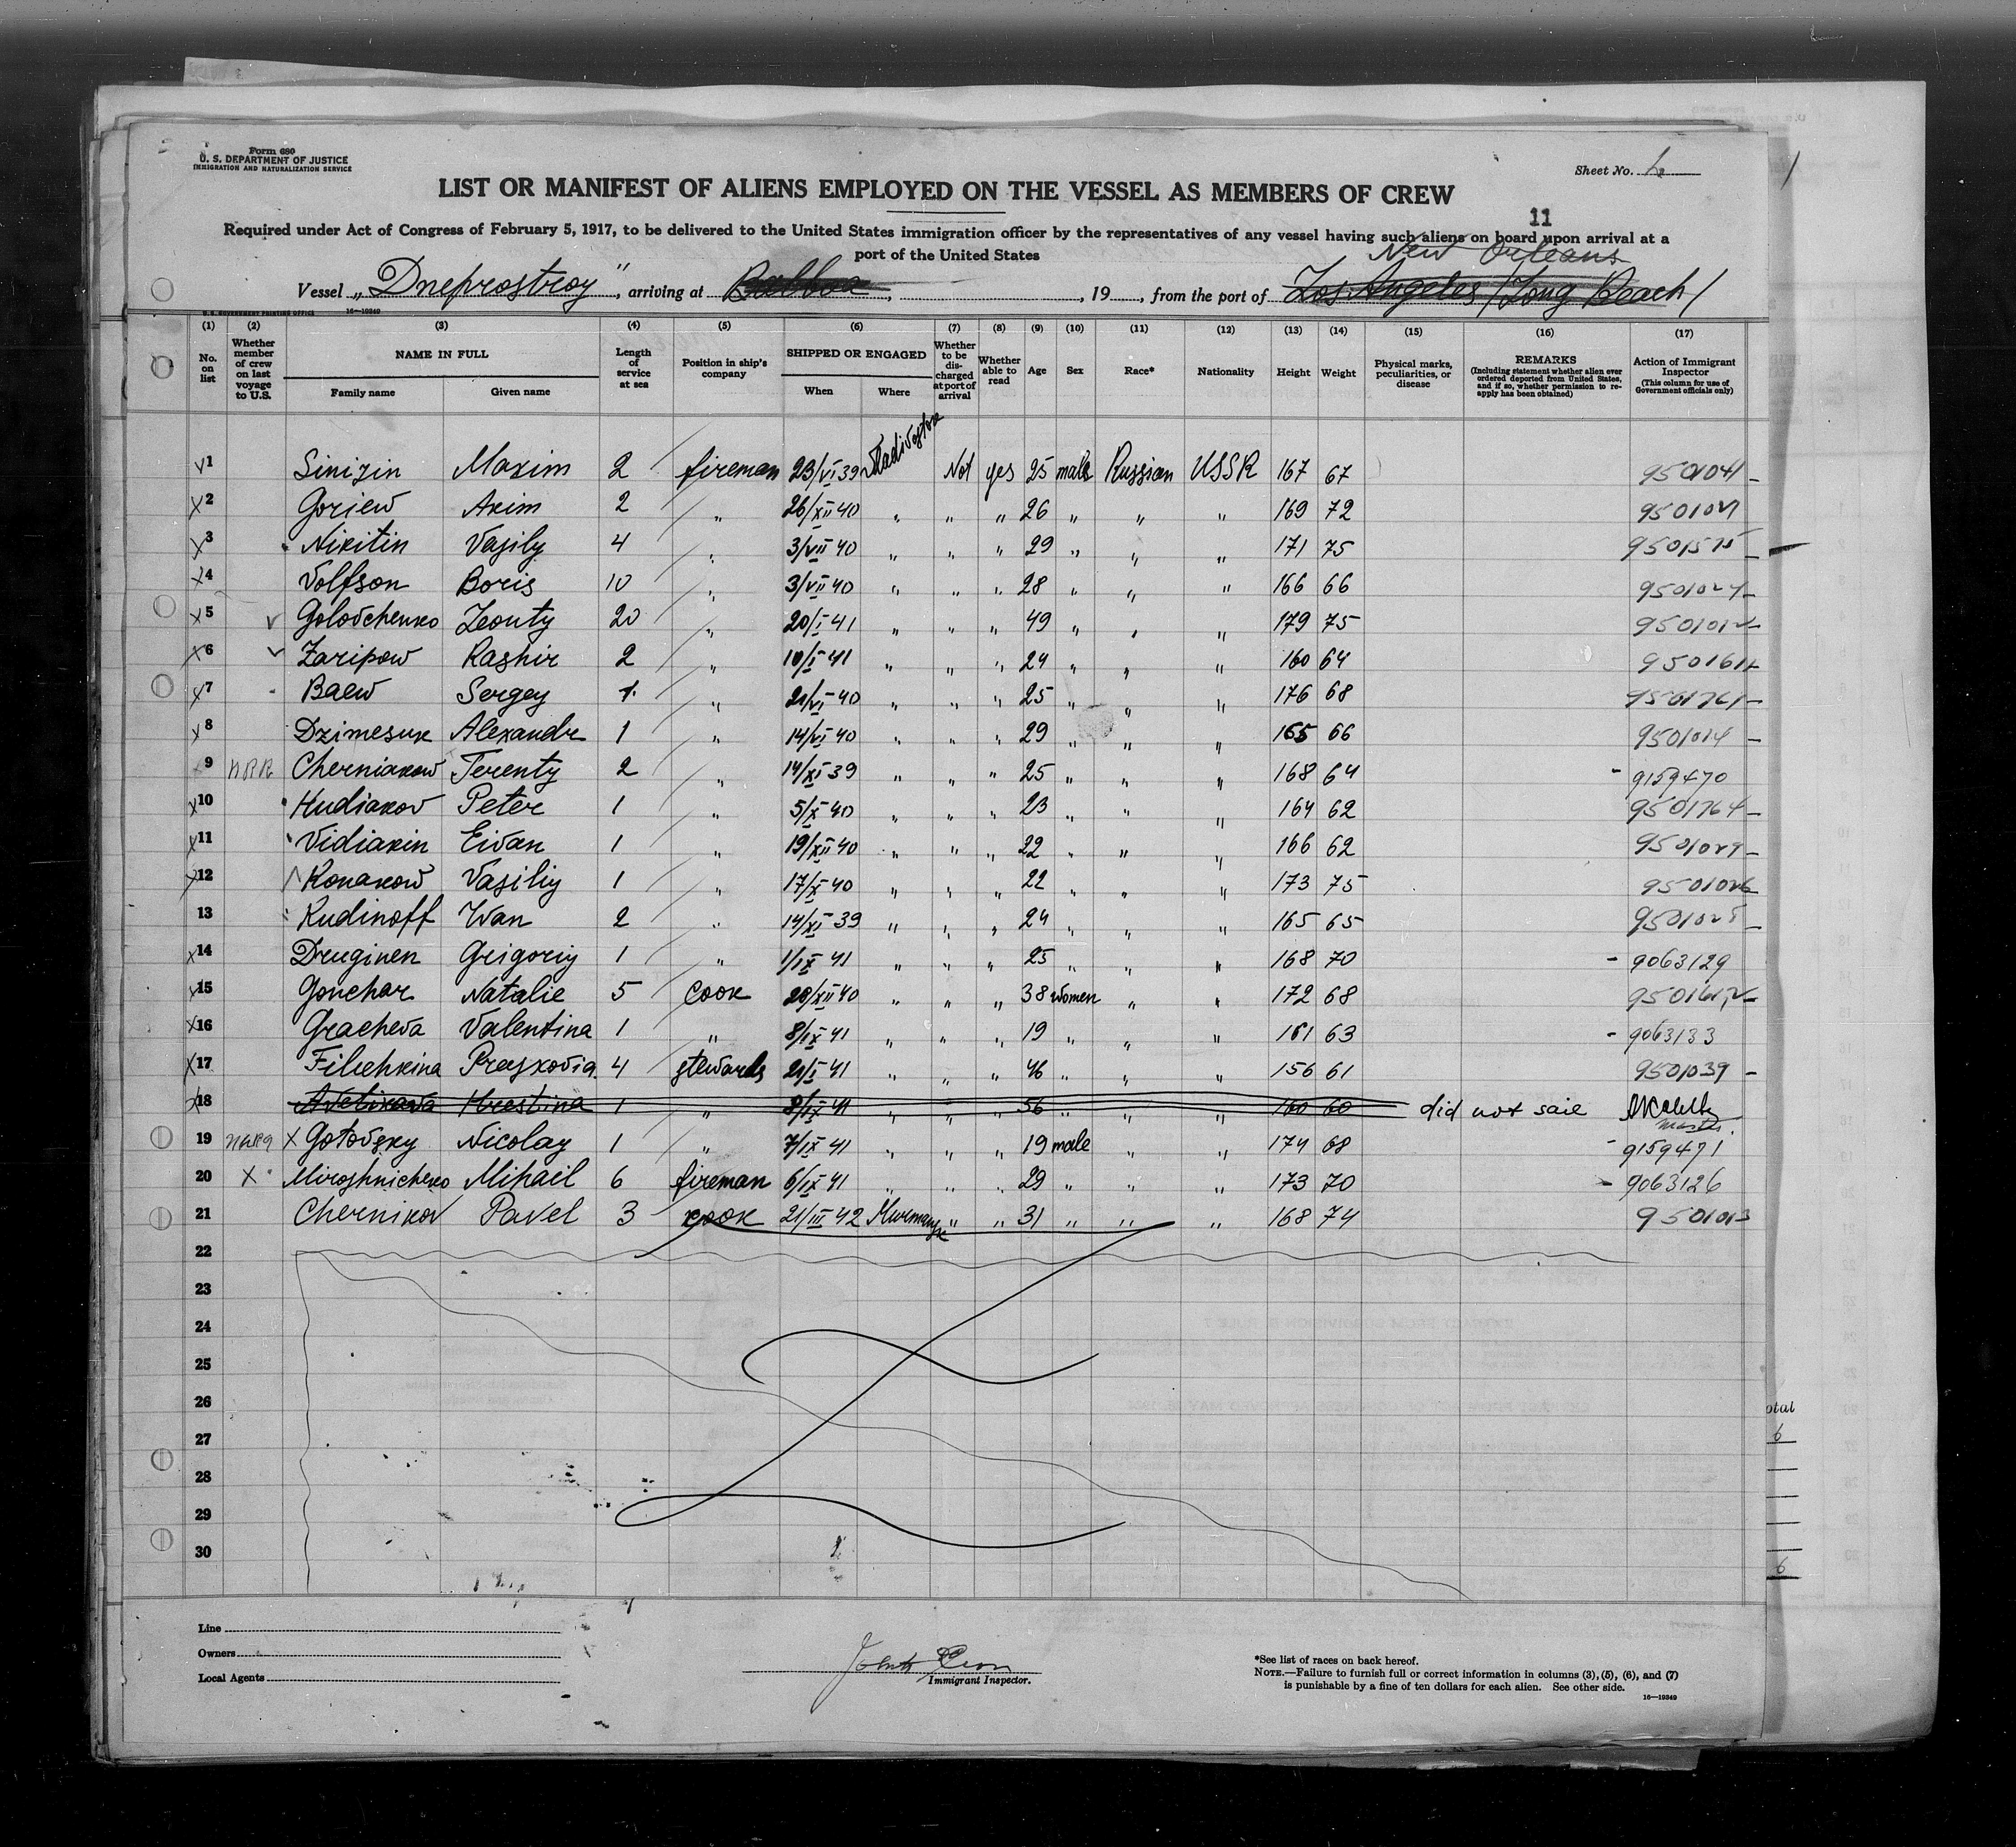 Form 680
U. S. DEPARTMENT OF JUSTICE
IMMIGRATION AND NATURALIZATION SERVICE
Sheet No.
LIST OR MANIFEST OF ALIENS EMPLOYED ON THE VESSEL AS MEMBERS OF CREW
11
Required under Act of Congress of February 5, 1917, to be delivered to the United States immigration officer by the representatives of any vessel having such aliens on board upon arrival at a
port of the United States
New Orleans
Vessel „Dneprostroy", arriving at Balboa, 19, from the port of Los Angeles /Long Beach/
U. S. GOVERNMENT PRINTING OFFICE 16—19349
(1) (2) (3) (4) (5) (6) (7) (8) (9) (10) (11) (12) (13) (14) (15) (16) (17)
No. on list
Whether member of crew on last voyage to U.S.
NAME IN FULL
Family name Given name
Length of service at sea
Position in ship's company
SHIPPED OR ENGAGED
When Where
Whether to be discharged at port of arrival
Whether able to read
Age Sex Race* Nationality Height Weight
Physical marks, peculiarities, or disease
REMARKS
(Including statement whether alien ever ordered deported from United States, and if so, whether permission to reapply has been obtained)
Action of Immigrant Inspector
(This column for use of Government officials only)
1 Sinizin Maxim 2 fireman 23/VI 39 Vladivostok Not yes 25 male Russian USSR 167 67 9501041
2 Goriew Akim 2 „ 26/XII 40 „ „ „ 26 „ „ „ 169 72
3 Nikitin Vasily 4 „ 3/VII 40 „ „ „ 29 „ „ „ 171 75 9501575
4 Volfson Boris 10 „ 3/VII 40 „ „ „ 28 „ „ „ 166 66 9501027
5 Golovchenko Leonty 20 „ 20/I 41 „ „ „ 49 „ „ „ 179 75
6 Zaripow Rashir 2 „ 10/I 41 „ „ „ 24 „ „ „ 160 64
7 Baew Sergey 1 „ 21/VI 40 „ „ „ 25 „ „ „ 176 68 9501761
8 Dzimesuk Alexandr 1 „ 14/VI 40 „ „ „ 29 „ „ „ 165 66 9501014
9 Cherniakow Terenty 2 „ 14/XI 39 „ „ „ 25 „ „ „ 168 64 9159470
10 Hudiakov Peter 1 „ 5/X 40 „ „ „ 23 „ „ „ 164 62 9501764
11 Vidiakin Eivan 1 „ 19/XII 40 „ „ „ 22 „ „ „ 166 62 9501029
12 Konakow Vasiliy 1 „ 17/X 40 „ „ „ 22 „ „ „ 173 75 9501026
13 Kudinoff Ivan 2 „ 14/XI 39 „ „ „ 24 „ „ „ 165 65 9501028
14 Druginen Grigoriy 1 „ 1/IX 41 „ „ „ 25 „ „ „ 168 70 9063129
15 Gonchar Natalie 5 cook 20/XII 40 „ „ „ 38 women „ „ 172 68
16 Gracheva Valentina 1 „ 8/IX 41 „ „ „ 19 „ „ „ 161 63 9063133
17 Filichkina Praskovia 4 stewards 21/I 41 „ „ „ 46 „ „ „ 156 61 9501039
18 Avetikava Hrestina 1 „ 8/IX 41 „ „ „ 56 „ „ „ 160 60 did not saie
master.
19 Gotovsky Nicolay 1 „ 7/IX 41 „ „ „ 19 male „ „ 174 68 9159471
20 X Miroshnichenko Mihail 6 fireman 6/IX 41 „ „ „ 29 „ „ „ 173 70 9063126
21 Chernikov Pavel 3 cook 21/III 42 Murmansk „ „ 31 „ „ „ 168 74 9501013
22
23
24
25
26
27
28
29
30
otal
6
6
Line
Owners
Local Agents
Immigrant Inspector.
*See list of races on back hereof.
NOTE.—Failure to furnish full or correct information in columns (3), (5), (6), and (7)
is punishable by a fine of ten dollars for each alien. See other side.
16—19349